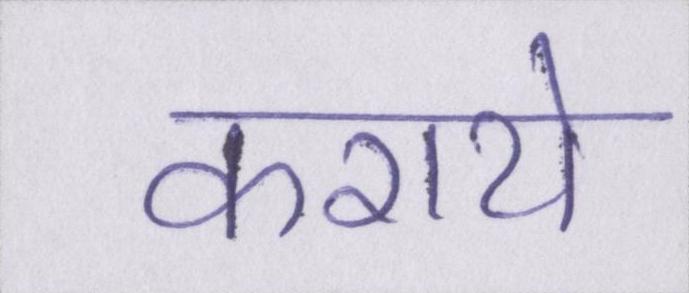 कराये